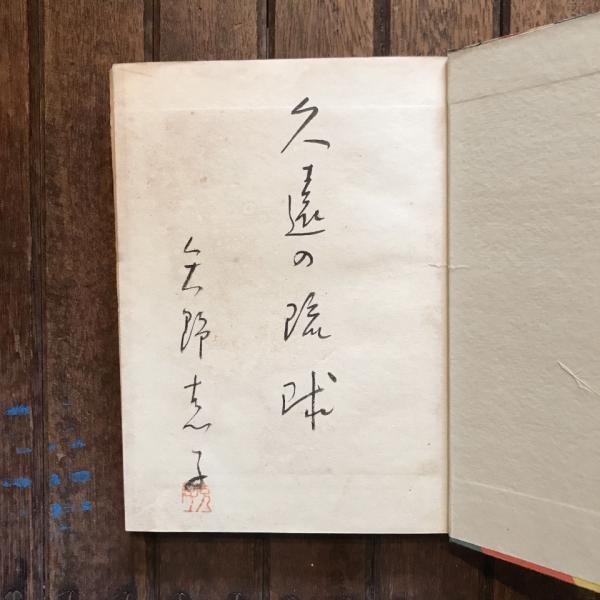 久遠の琉球
矢野克子